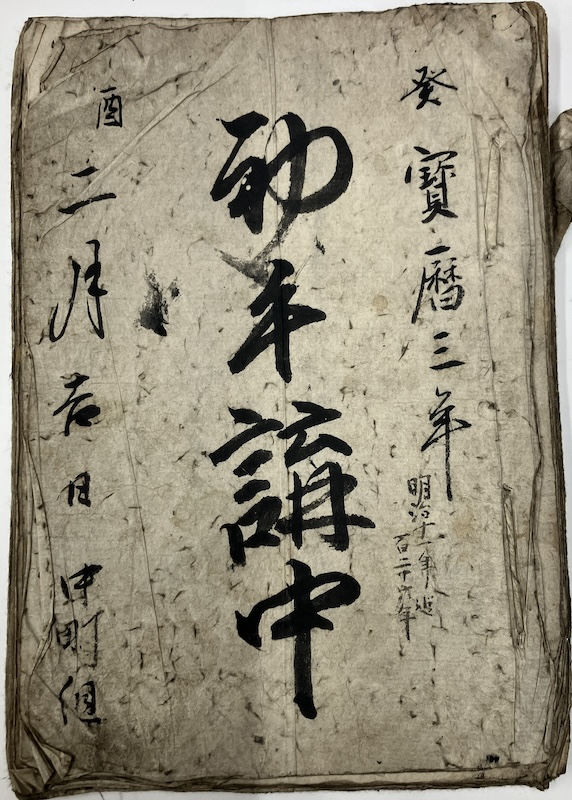 癸寶暦三年
明治十一年迄
百二十六年
初午講中
酉二月吉日 中町組